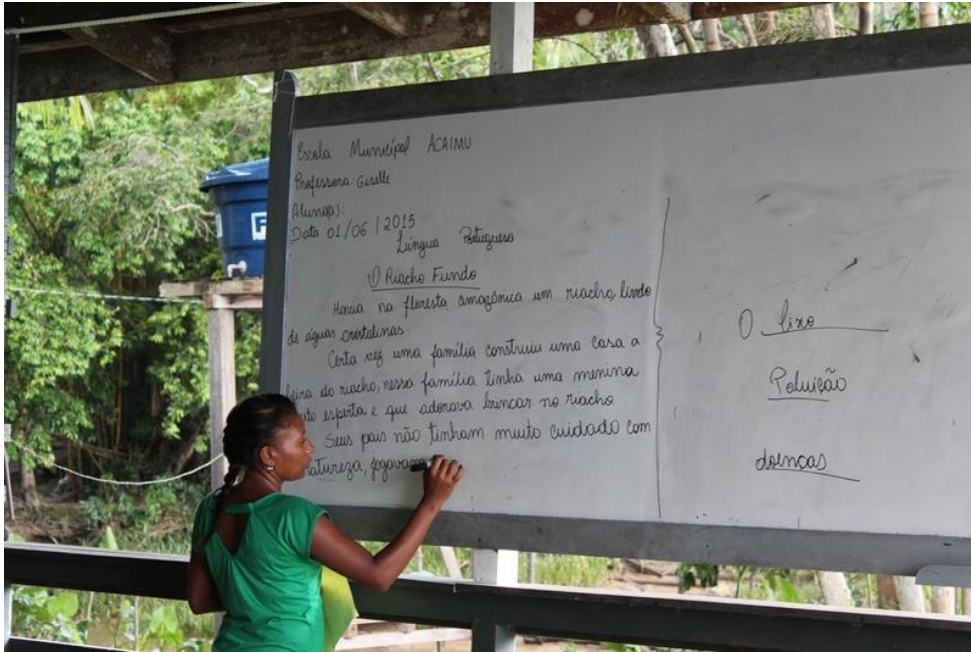 Escola Municipal ACAIMU
Professora: Giselle
Aluno(a):
Data 01/06/2015
Língua Portuguesa
O Riacho Fundo
Havia na floresta amazônica um riacho, lindo
de águas cristalinas.
Certa vez uma família construiu uma casa a
beira do riacho, nessa família tinha uma menina
esperta e que adorava brincar no riacho
Seus pais não tinham muito cuidado com
natureza, jogavam
O lixo
Poluição
doenças
F